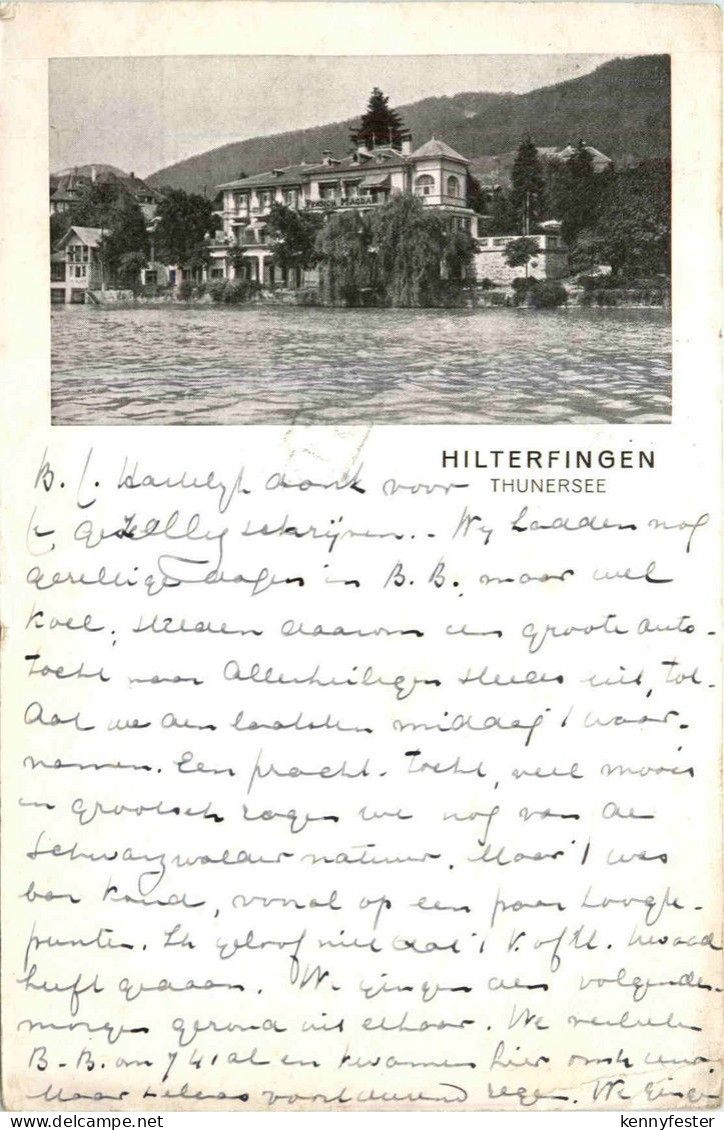 PENSION MAGDA
HILTERFINGEN
THUNERSEE
B. f. Hartelijk dank voor
gezellig schrijven.. Wij hadden nog
gezellige dagen in B. B., maar wel
koel, stelden daarom een groote auto-
tocht naar Allerheiligen steeds uit, tot-
dat we den laatsten middag 't waar-
namen. Een pracht- tocht, veel moois
en grootsch zagen we nog van de
Schwarzwalder natuur. Maar 't was
bar koud, vooral op een paar hoogte-
punten. Ik geloof niet dat 't kwaad
heeft gedaan. We gingen den volgenden
morgen gerond uit elkaar. We verlieten
B-B. om 7 41 al en kwamen hier om uur.
Maar helaas voortdurend regen. We gingen
kennyfester
Delcampe.net